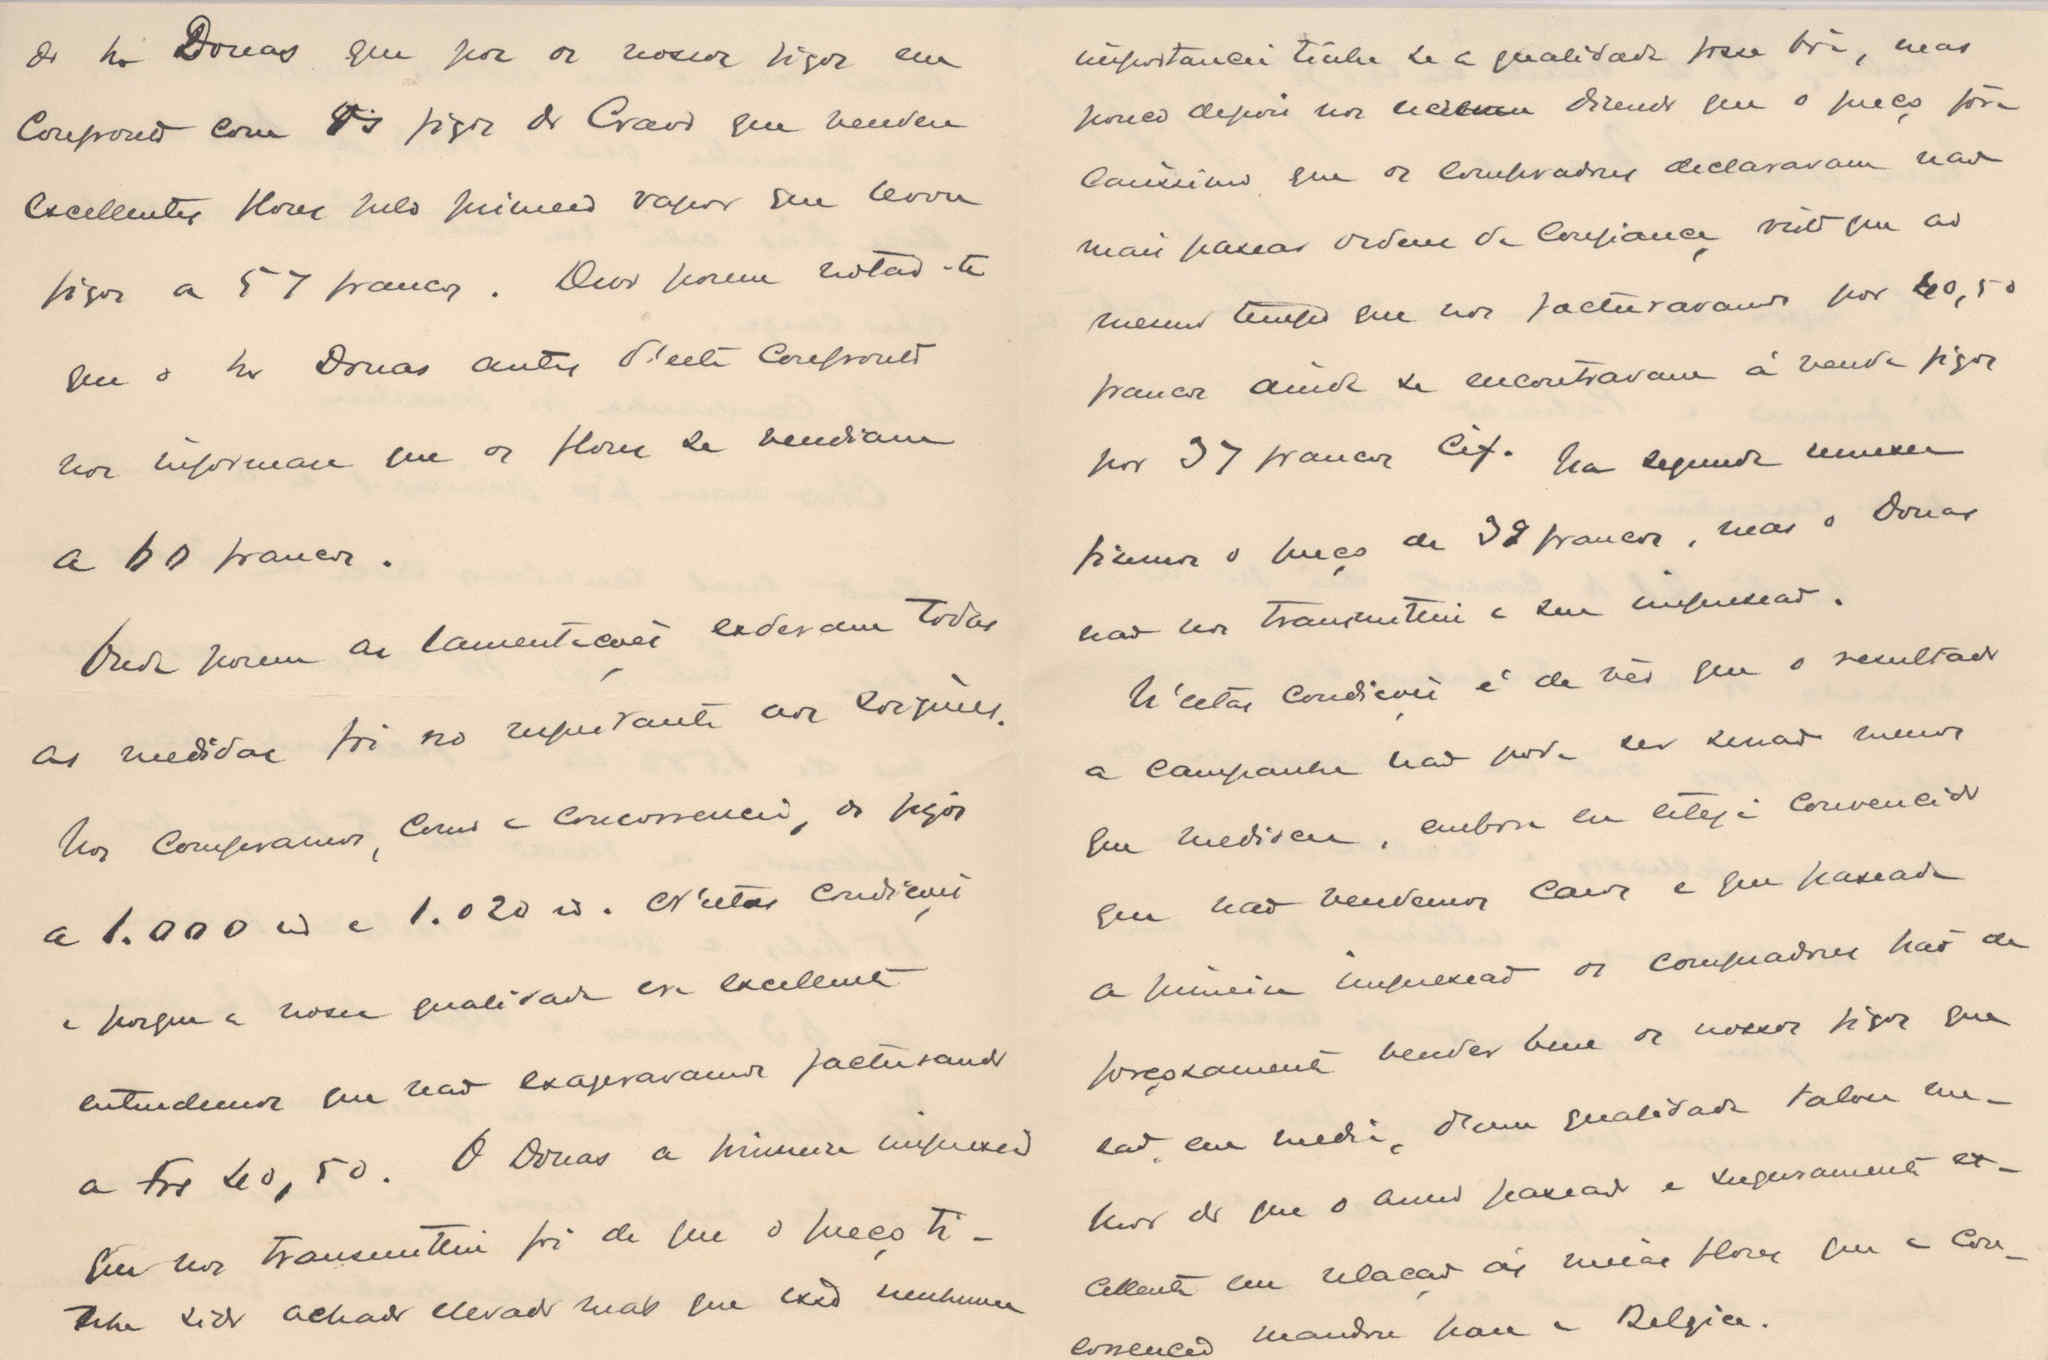 do Sr Douas que poz os nossos figos em
confronto com os figos do Cravo que vendeu
excellentes flores pelo primeiro vapor que levou
figos a 57 francos. Devo porem notar-te
que o Sr Douas antes d'este confronto
nos informara que os flores se vendiam
a 60 francos.
Onde porem as lamentações excederam todas
as medidas foi no respeitante aos
Nos compramos, como a concorrencia, os figos
a 1.000 rs e 1.020 rs. N'estas condições
e porque a nossa qualidade era excellente
entendemos que não exageravamos facturando
a Frs 40,50. O Douas a primeira impressão
que nos transmittiu foi de que o preço ti-
nha sido achado elevado mas que isso nenhuma
importancia tinha se a qualidade fosse bôa, mas
pouco depois nos dizendo que o preço fôra
carissimo que os compradores declaravam não
mais passar ordens de confiança visto que ao
mesmo tempo que nos facturavamos por 40,50
francos ainda se encontravam á venda figos
por 37 francos Cif. Na segunda remessa
fizemos o preço de 39 francos, mas o Douas
não nos transmittiu a sua impressão.
N'estas condições é de vêr que o resultado
a campanha não póde ser senão menos
que mediocre, embora eu esteja convencido
que não vendemos caros e que passada
a primeira impressão os compradores hão de
forçosamente vender bem os nossos figos que
são, em media, d'uma qualidade talvez me-
lhor do que o anno passado e seguramente ex-
cellente em relação ás meias flores que a con-
correncia mandou para a Belgica.